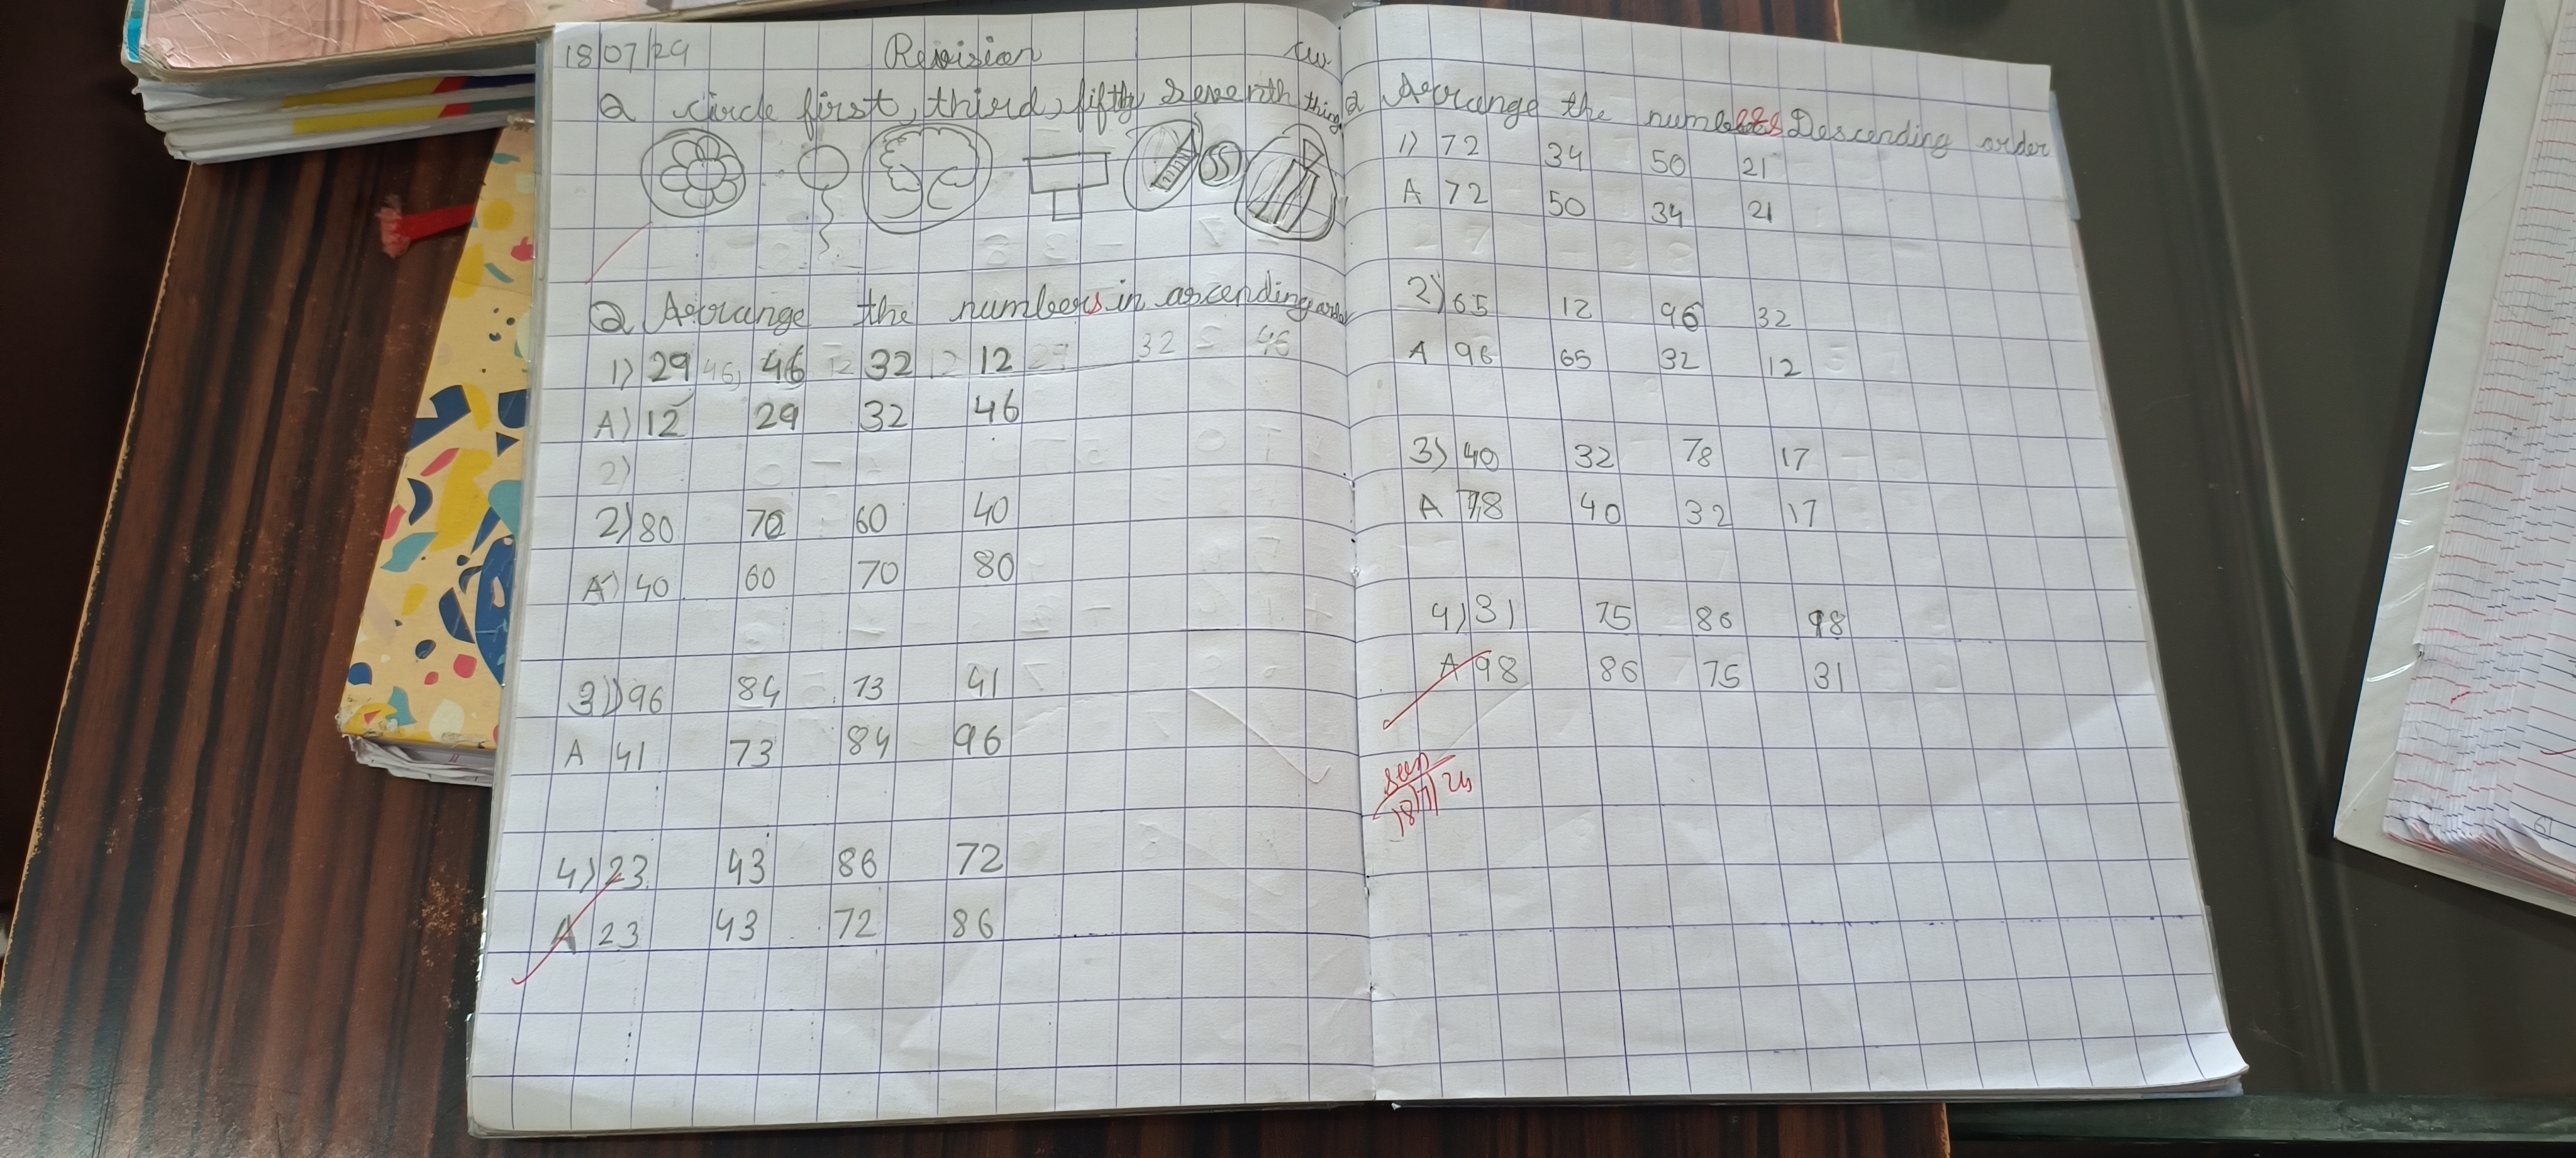 18/07/24 Revision cw
Q circle first, third, fifth, seventh thing
Q Arrange the numbers in ascending order
1) 29 46 32 12
A) 12 29 32 46
2)
2) 80 70 60 40
A) 40 60 70 80
3) 96 84 73 41
A 41 73 84 96
4) 23 43 86 72
A 23 43 72 86
Q Arrange the numbers Descending order
1) 72 34 50 21
A 72 50 34 21
2) 65 12 96 32
A 96 65 32 12
3) 40 32 78 17
A 78 40 32 17
4) 31 75 86 98
A 98 86 75 31
seen
18/7/24